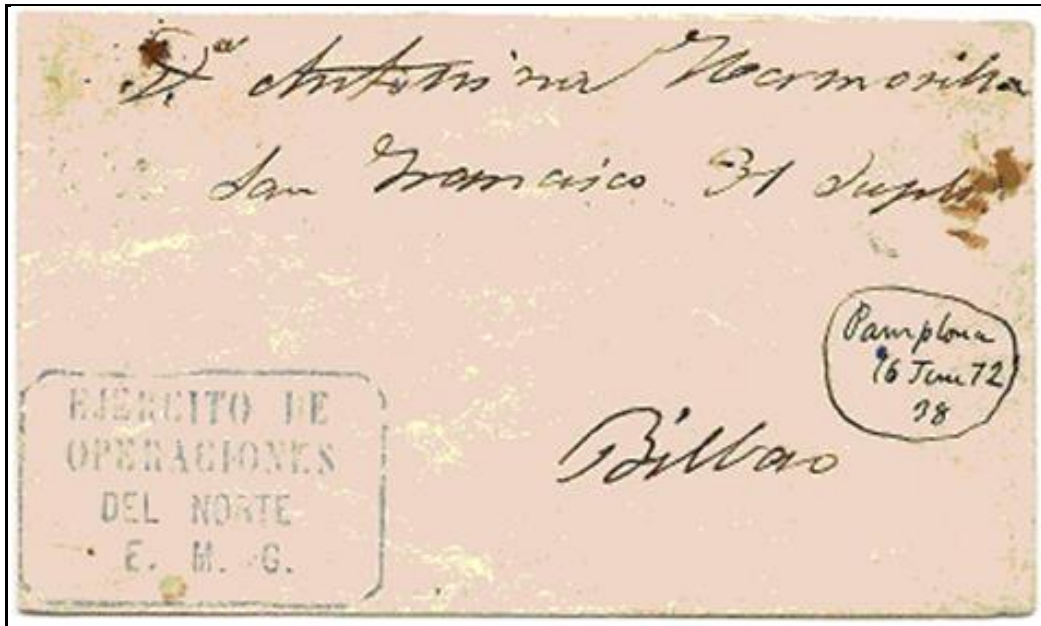 Dª Antonina Hermosilla
San Francisco 31 dupl.
Pamplona
16 Jun 72
38
Bilbao
EJERCITO DE
OPERACIONES
DEL NORTE
E. M. G.